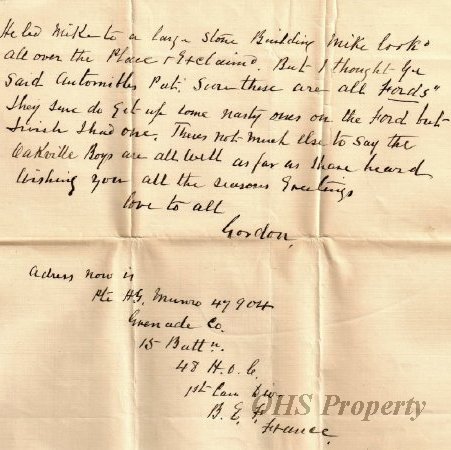 He led Mike to a large Stone Building Mike look'd
all over the Place & Exclaim'd. But I thought Ye
said Automibles Pat, Sure these are all Fords"
They sure do Get up some nasty ones on the Ford but
I wish I had one. Theres not much else to Say the
Oakville Boys are all well as far as I have heard
Wishing you all the seasons Greetings
love to all
Gordon,
Adress now is
Pte HG. Munro 47904
Grenade Co.
15 Battn.
48 H.O.C.
1st Can Div
B.E.F
France
OHS Property